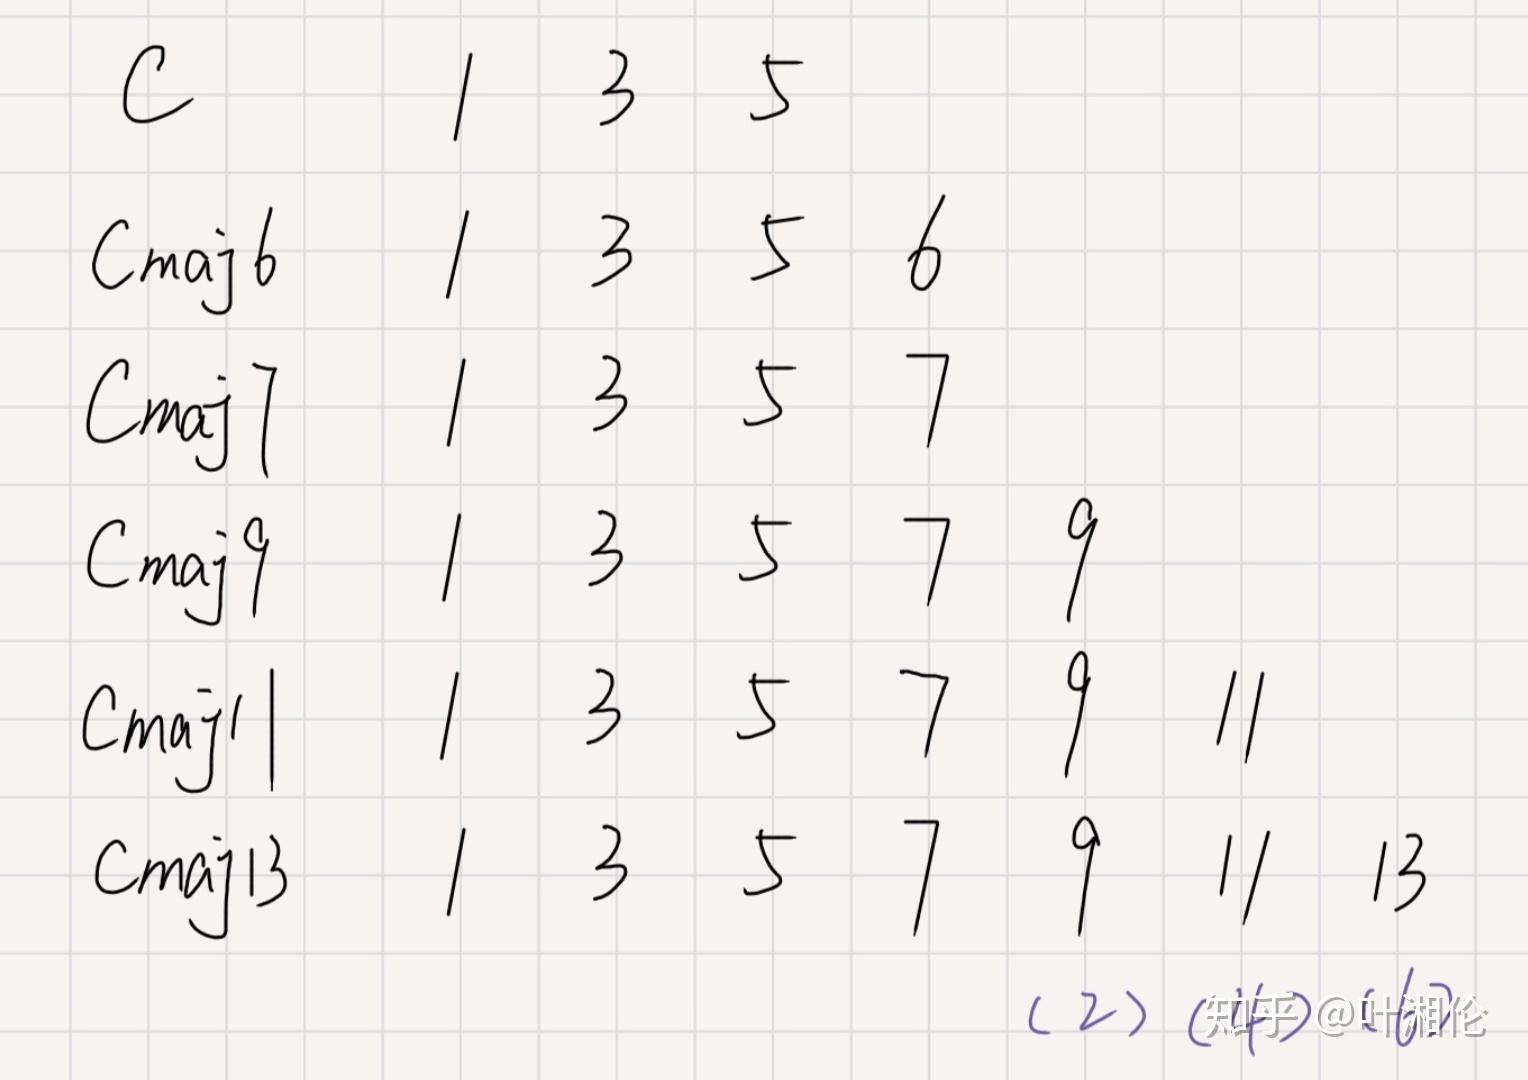 C 1 3 5
Cmaj6 1 3 5 6
Cmaj7 1 3 5 7
Cmaj9 1 3 5 7 9
Cmaj11 1 3 5 7 9 11
Cmaj13 1 3 5 7 9 11 13
(2) (4) (6)
知乎 @叶湘伦